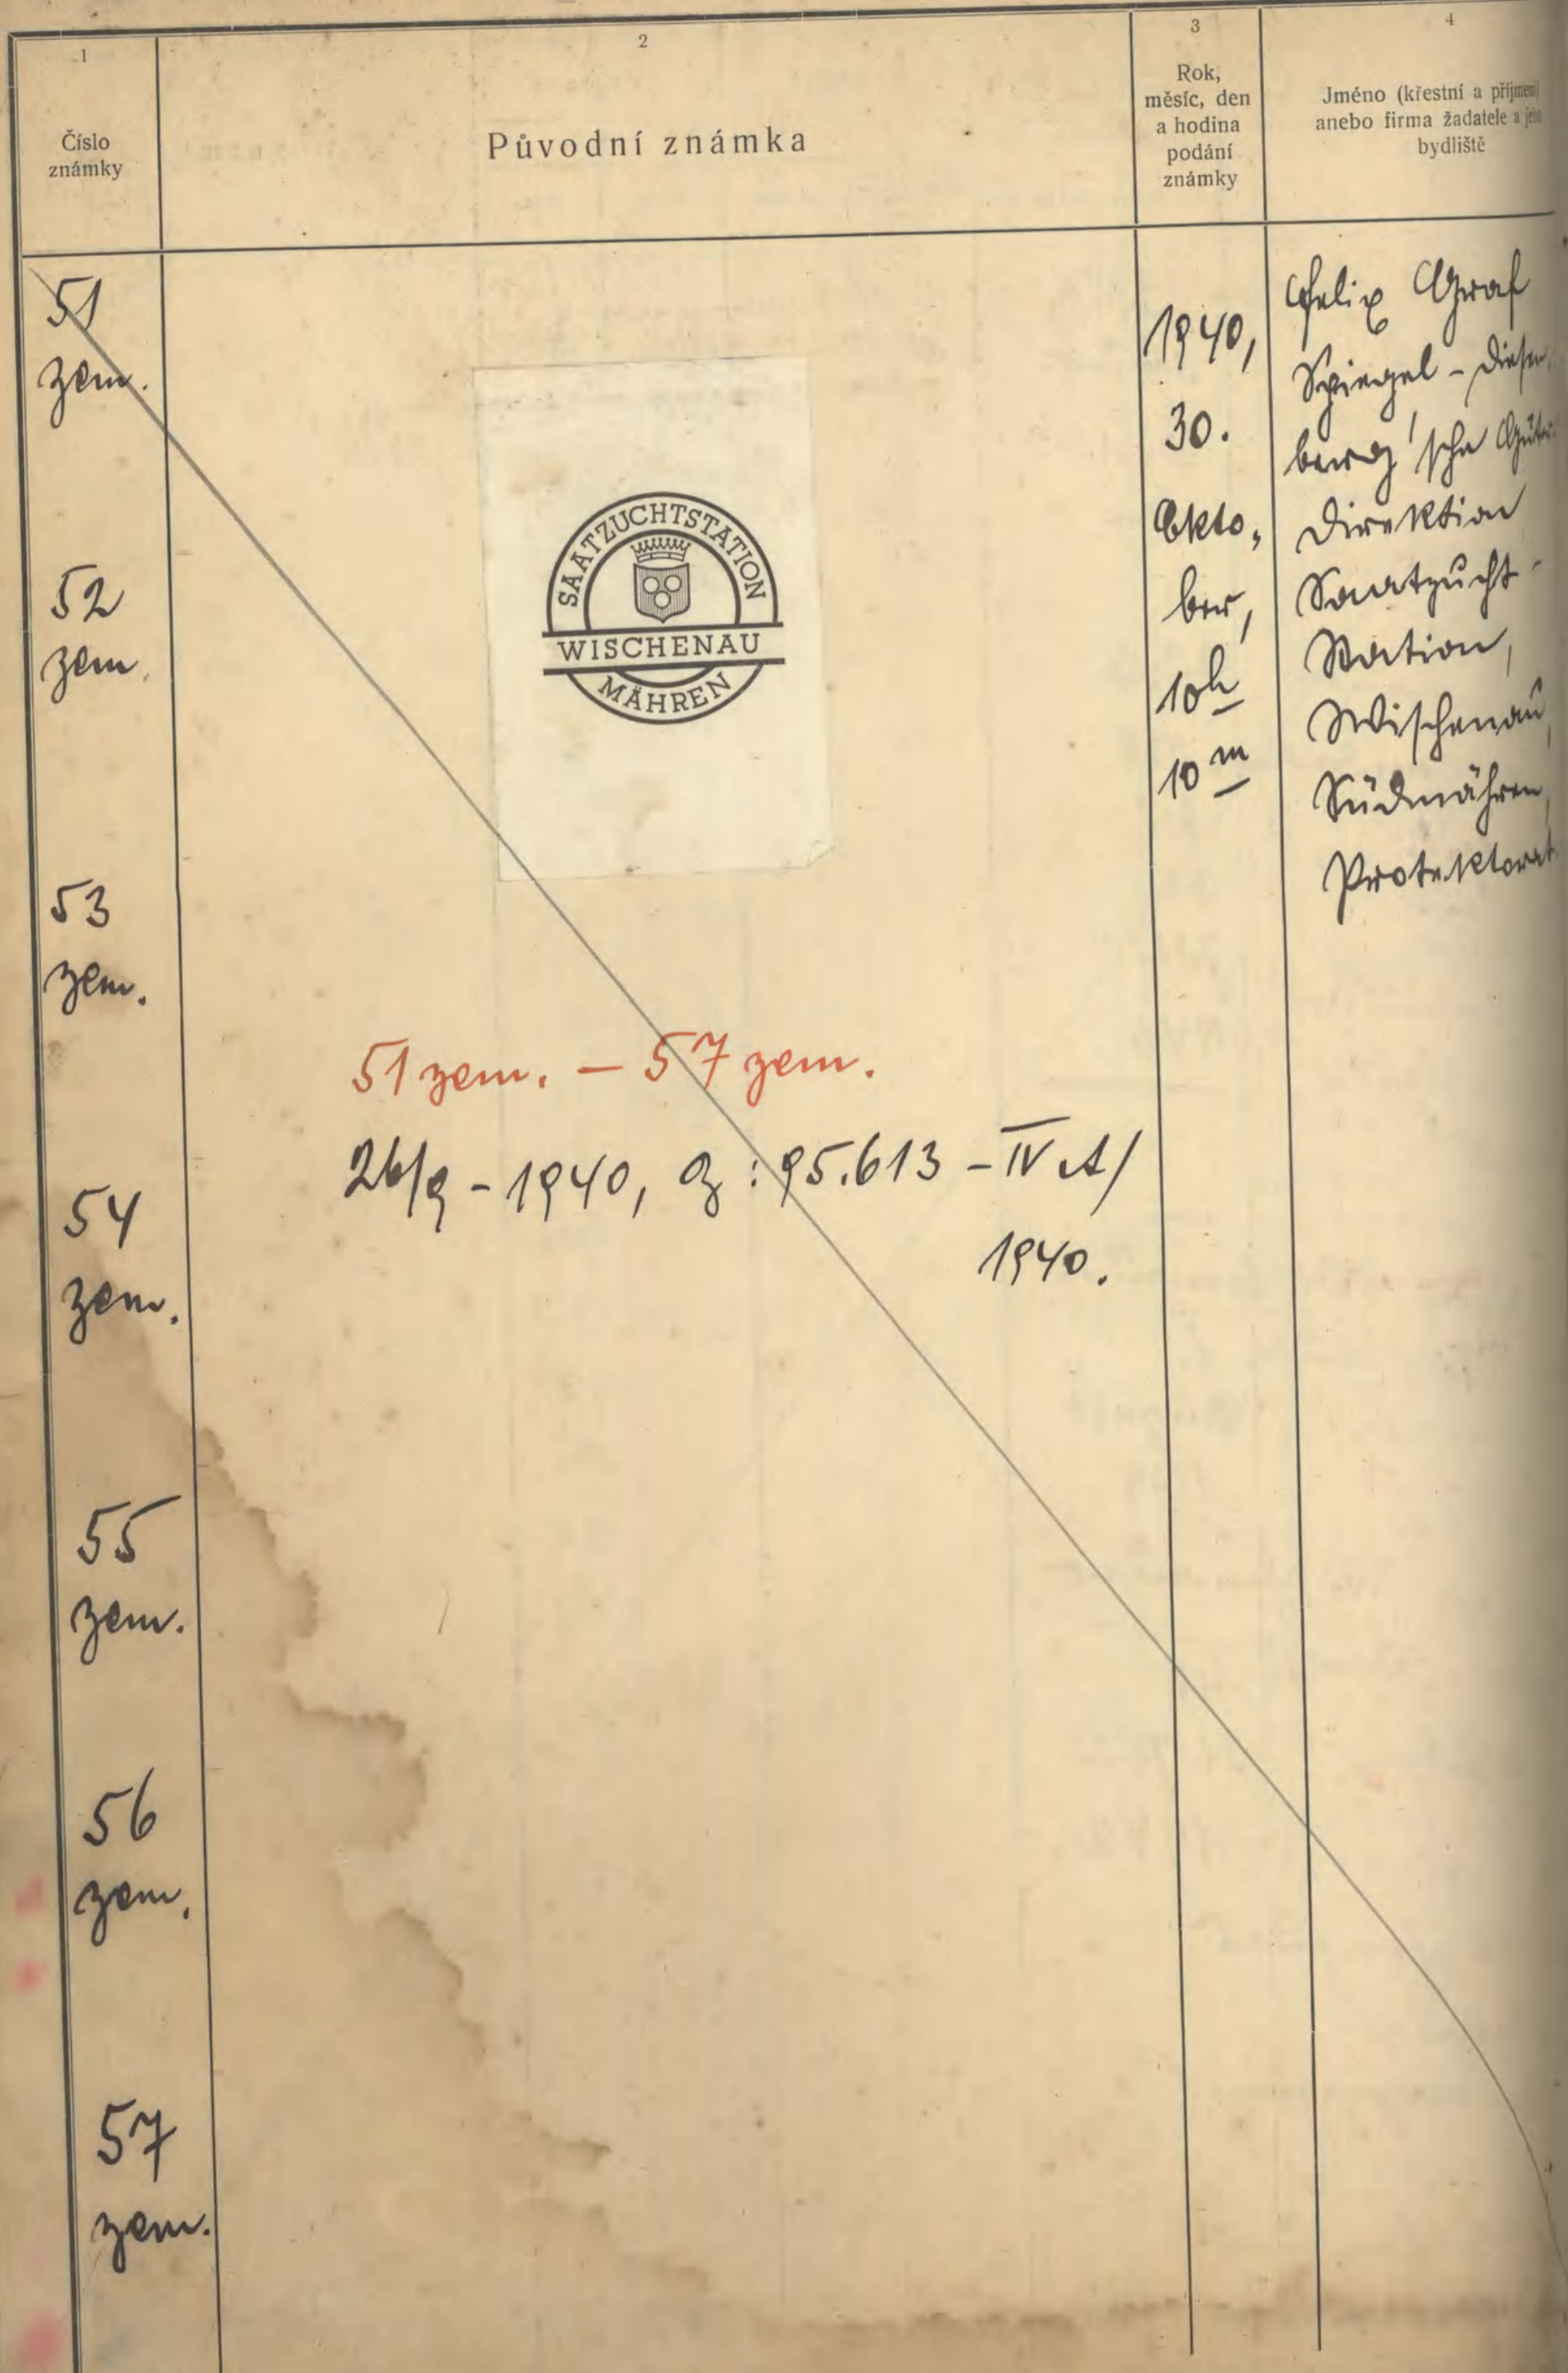 1
Číslo
známky
2
Původní známka
3
Rok,
měsíc, den
a hodina
podání
známky
4
Jméno (křestní a příjmení)
anebo firma žadatele a jeho
bydliště
51
zem.
52
zem.
53
zem.
54
zem.
55
zem.
56
zem.
57
zem.
SAATZUCHTSTATION
WISCHENAU
MÄHREN
51 zem. – 57 zem.
26/9 - 1940, Z: 95.613 - IV A/
1940.
1940,
30.
Okto,
ber,
10h
10m
Felix Graf
Spiegel - Diesen,
berg'sche Güter
Direktion
Saatzucht-
Station,
Wischenau,
Südmähren,
Protektorat